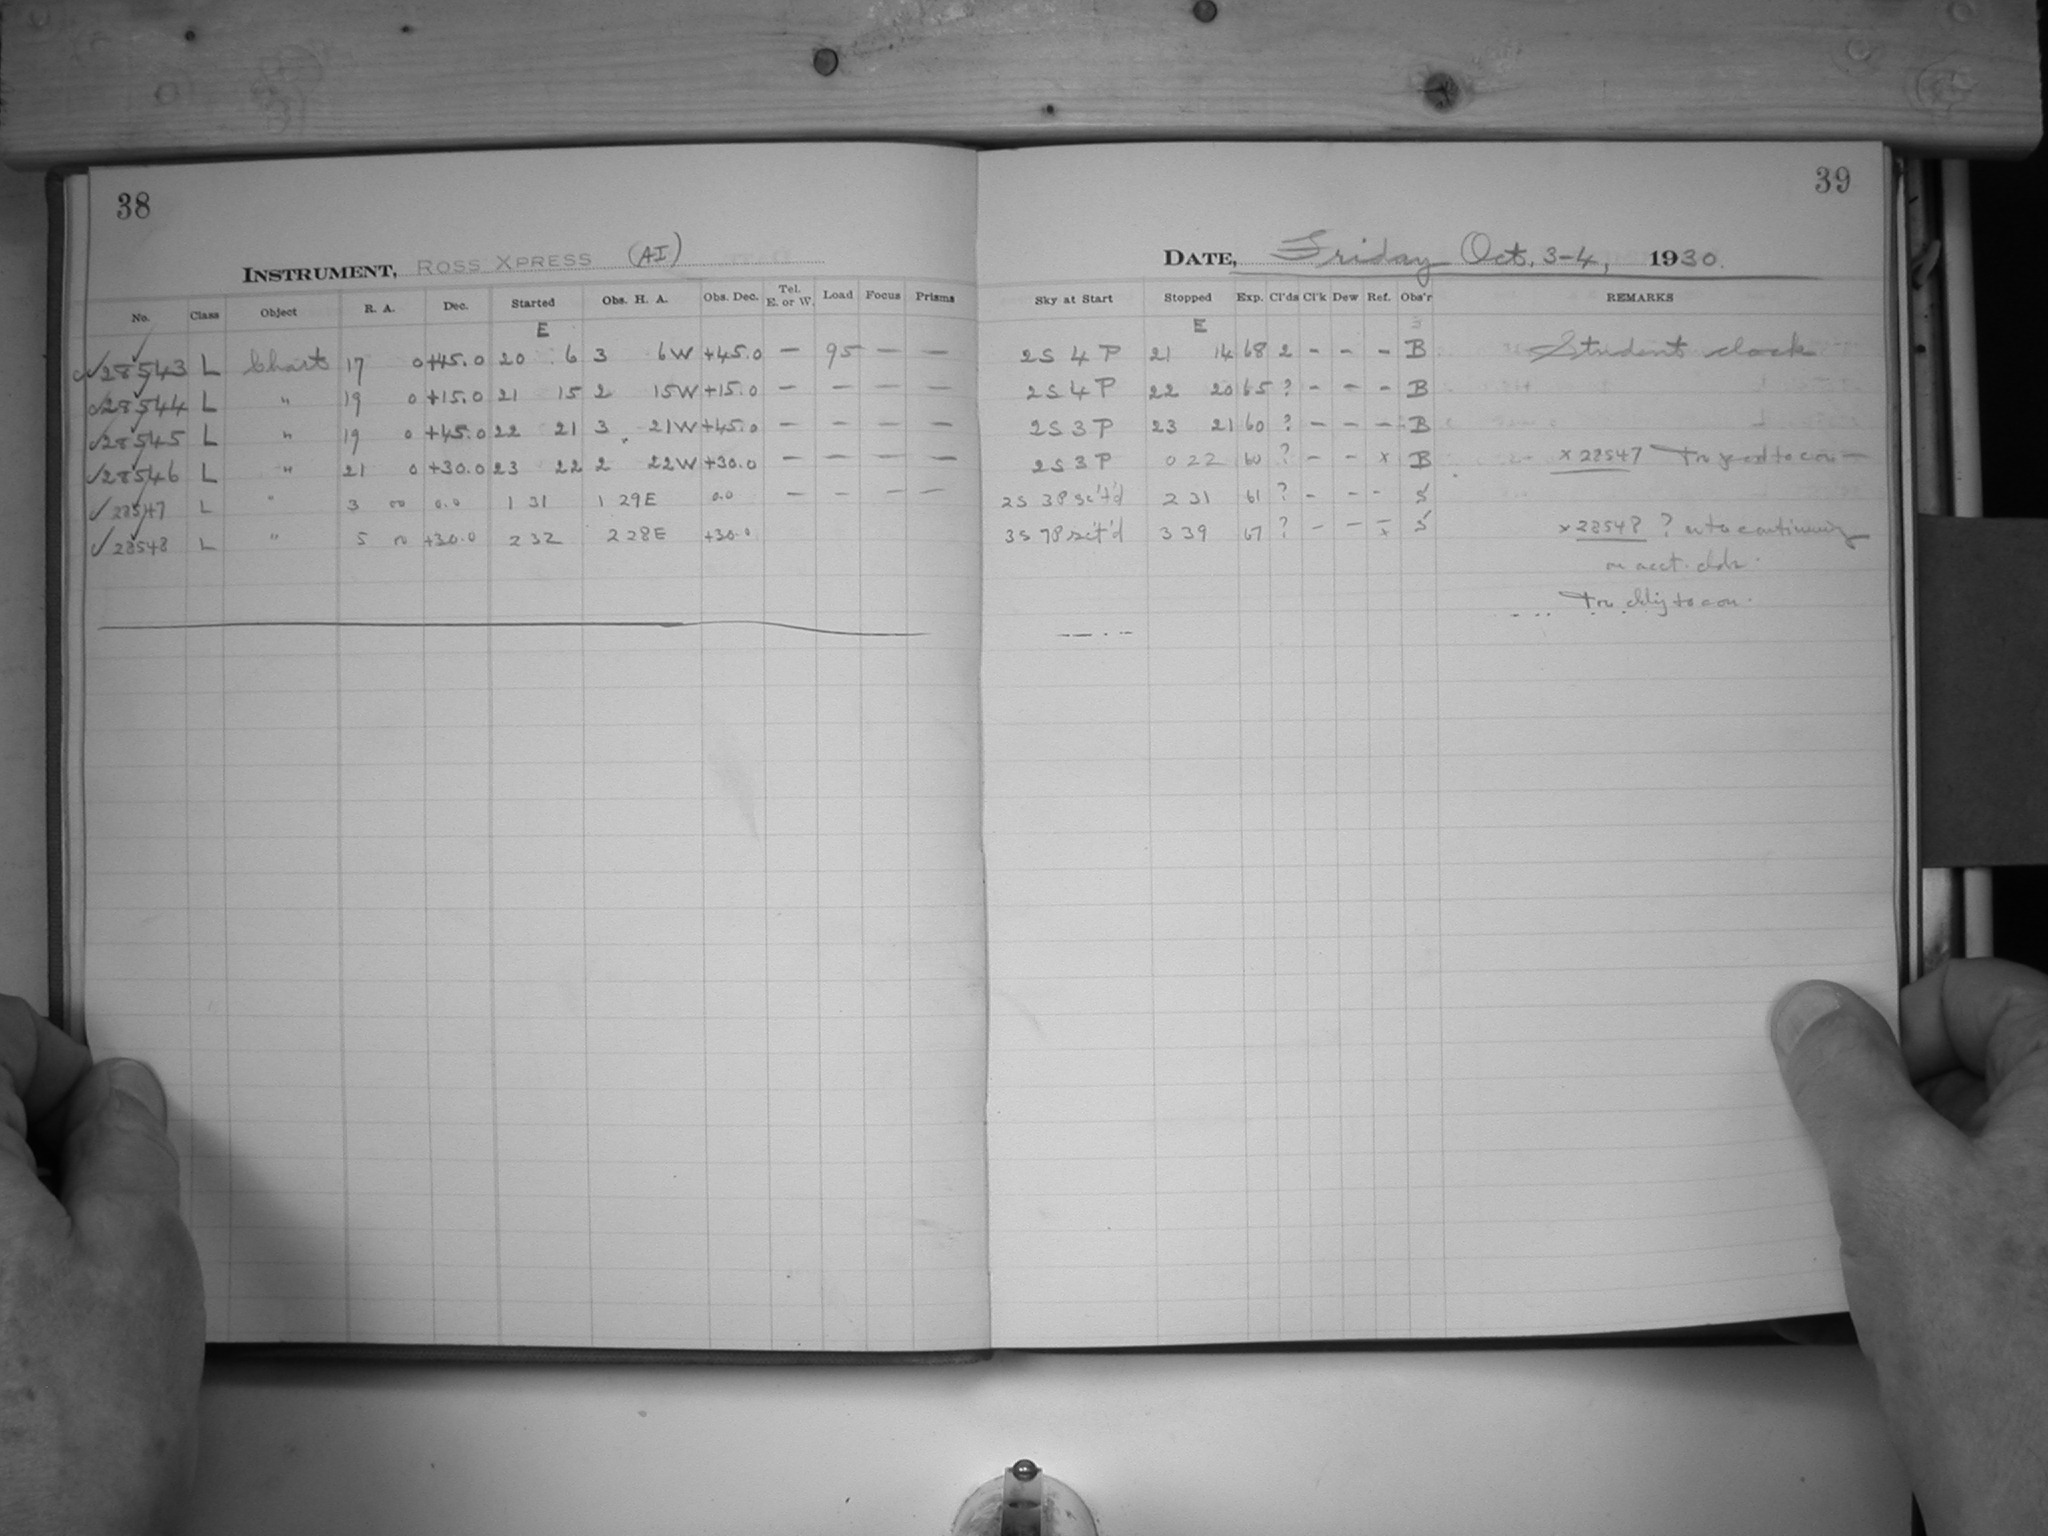 38
39
INSTRUMENT, ROSS XPRESS (AI)
DATE, Friday Oct. 3-4, 1930.
No. Class Object R. A. Dec. Started Obs. H. A. Obs. Dec. Tel. E. or W. Load Focus Prisms Sky at Start Stopped Exp. Cl'ds Cl'k Dew Ref. Obs'r REMARKS
E E
✓28543 L Chart 17 0 +45.0 20 6 3 6W +45.0 — 95 — — 2S 4P 21 14 68 2 - - - B Student clock
✓28544 L " 19 0 +15.0 21 15 2 15W +15.0 — — — — 2S 4P 22 20 65 ? - - - B
✓28545 L " 19 0 +45.0 22 21 3 21W +45.0 — — — — 2S 3P 23 21 60 ? - - - B
✓28546 L " 21 0 +30.0 23 22 2 22W +30.0 — — — — 2S 3P 0 22 60 ? - - x B x 28547
✓28547 L " 3 00 0.0 1 31 1 29E 0.0 — — — — 2S 3P sc't'd 2 31 61 ? - - - S
✓28548 L " 5 00 +30.0 2 32 2 28E +30.0 3S 7P sct'd 3 39 67 ? - - - x S x 28548 ? as to continuing
on acct. clds.
to con.